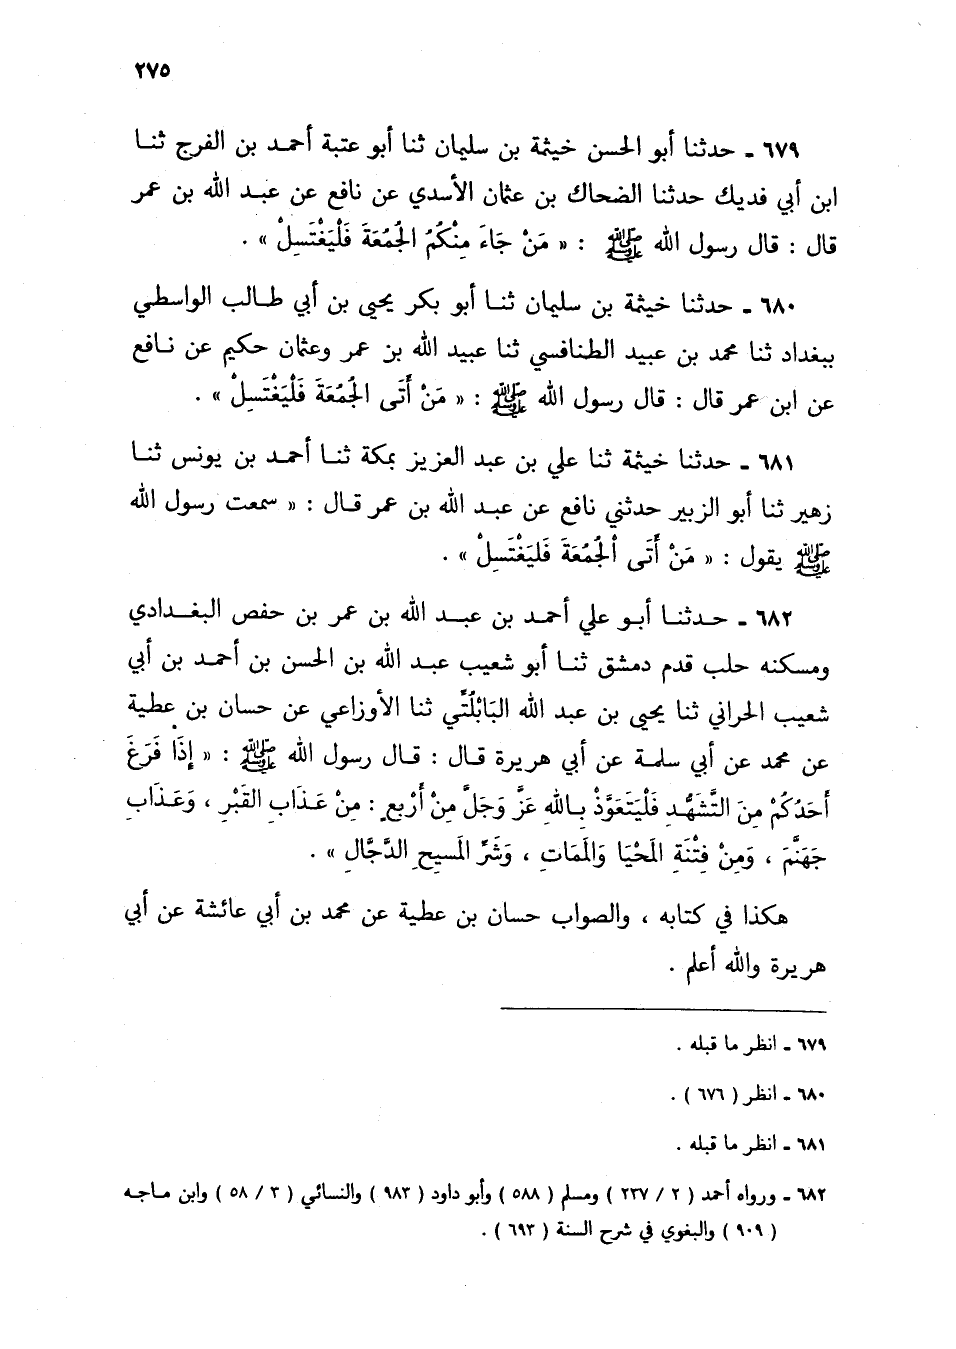 ٢٧٥
٦٧٩ ـ حدثنا أبو الحسن خيثمة بن سليمان ثنا أبو عتبة أحمد بن الفرج ثنا
ابن أبي فديك حدثنا الضحاك بن عثمان الأسدي عن نافع عن عبد الله بن عمر
قال : قال رسول الله ﷺ : « مَنْ جَاءَ مِنْكُمُ الجُمُعَةَ فَلْيَغْتَسِلْ » .
٦٨٠ ـ حدثنا خيثمة بن سليمان ثنا أبو بكر يحيى بن أبي طالب الواسطي
ببغداد ثنا محمد بن عبيد الطنافسي ثنا عبيد الله بن عمر وعثمان حكيم عن نافع
عن ابن عمر قال : قال رسول الله ﷺ : « مَنْ أَتَى الجُمُعَةَ فَلْيَغْتَسِلْ » .
٦٨١ ـ حدثنا خيثمة ثنا علي بن عبد العزيز بمكة ثنا أحمد بن يونس ثنا
زهير ثنا أبو الزبير حدثني نافع عن عبد الله بن عمر قال : « سمعت رسول الله
ﷺ يقول : « مَنْ أَتَى الْجُمُعَةَ فَليَغْتَسِلْ » .
٦٨٢ ـ حدثنا أبو علي أحمد بن عبد الله بن عمر بن حفص البغدادي
ومسكنه حلب قدم دمشق ثنا أبو شعيب عبد الله بن الحسن بن أحمد بن أبي
شعيب الحراني ثنا يحيى بن عبد الله البَابْلُتِّي ثنا الأوزاعي عن حسان بن عطية
عن محمد عن أبي سلمة عن أبي هريرة قال : قال رسول الله ﷺ : « إِذَا فَرَغَ
أَحَدُكُمْ مِنَ التَّشَهُّدِ فَلْيَتَعَوَّذْ بِاللهِ عَزَّ وَجَلَّ مِنْ أَرْبعٍ : مِنْ عَذَابِ القَبْرِ ، وَعَذَابِ
جَهَنَّمَ ، وَمِنْ فِتْنَةِ المَحْيَا وَالمَمَاتِ ، وَشَرِّ المَسيحِ الدَّجَّالِ » .
هكذا في كتابه ، والصواب حسان بن عطية عن محمد بن أبي عائشة عن أبي
هريرة والله أعلم .
٦٧٩ ـ انظر ما قبله .
٦٨٠ ـ انظر ( ٦٧٦ ) .
٦٨١ ـ انظر ما قبله .
٦٨٢ ـ ورواه أحمد ( ٢ / ٢٣٧ ) ومسلم ( ٥٨٨ ) وأبو داود ( ٩٨٣ ) والنسائي ( ٣ / ٥٨ ) وابن ماجه
( ٩٠٩ ) والبغوي في شرح السنة ( ٦٩٣ ) .